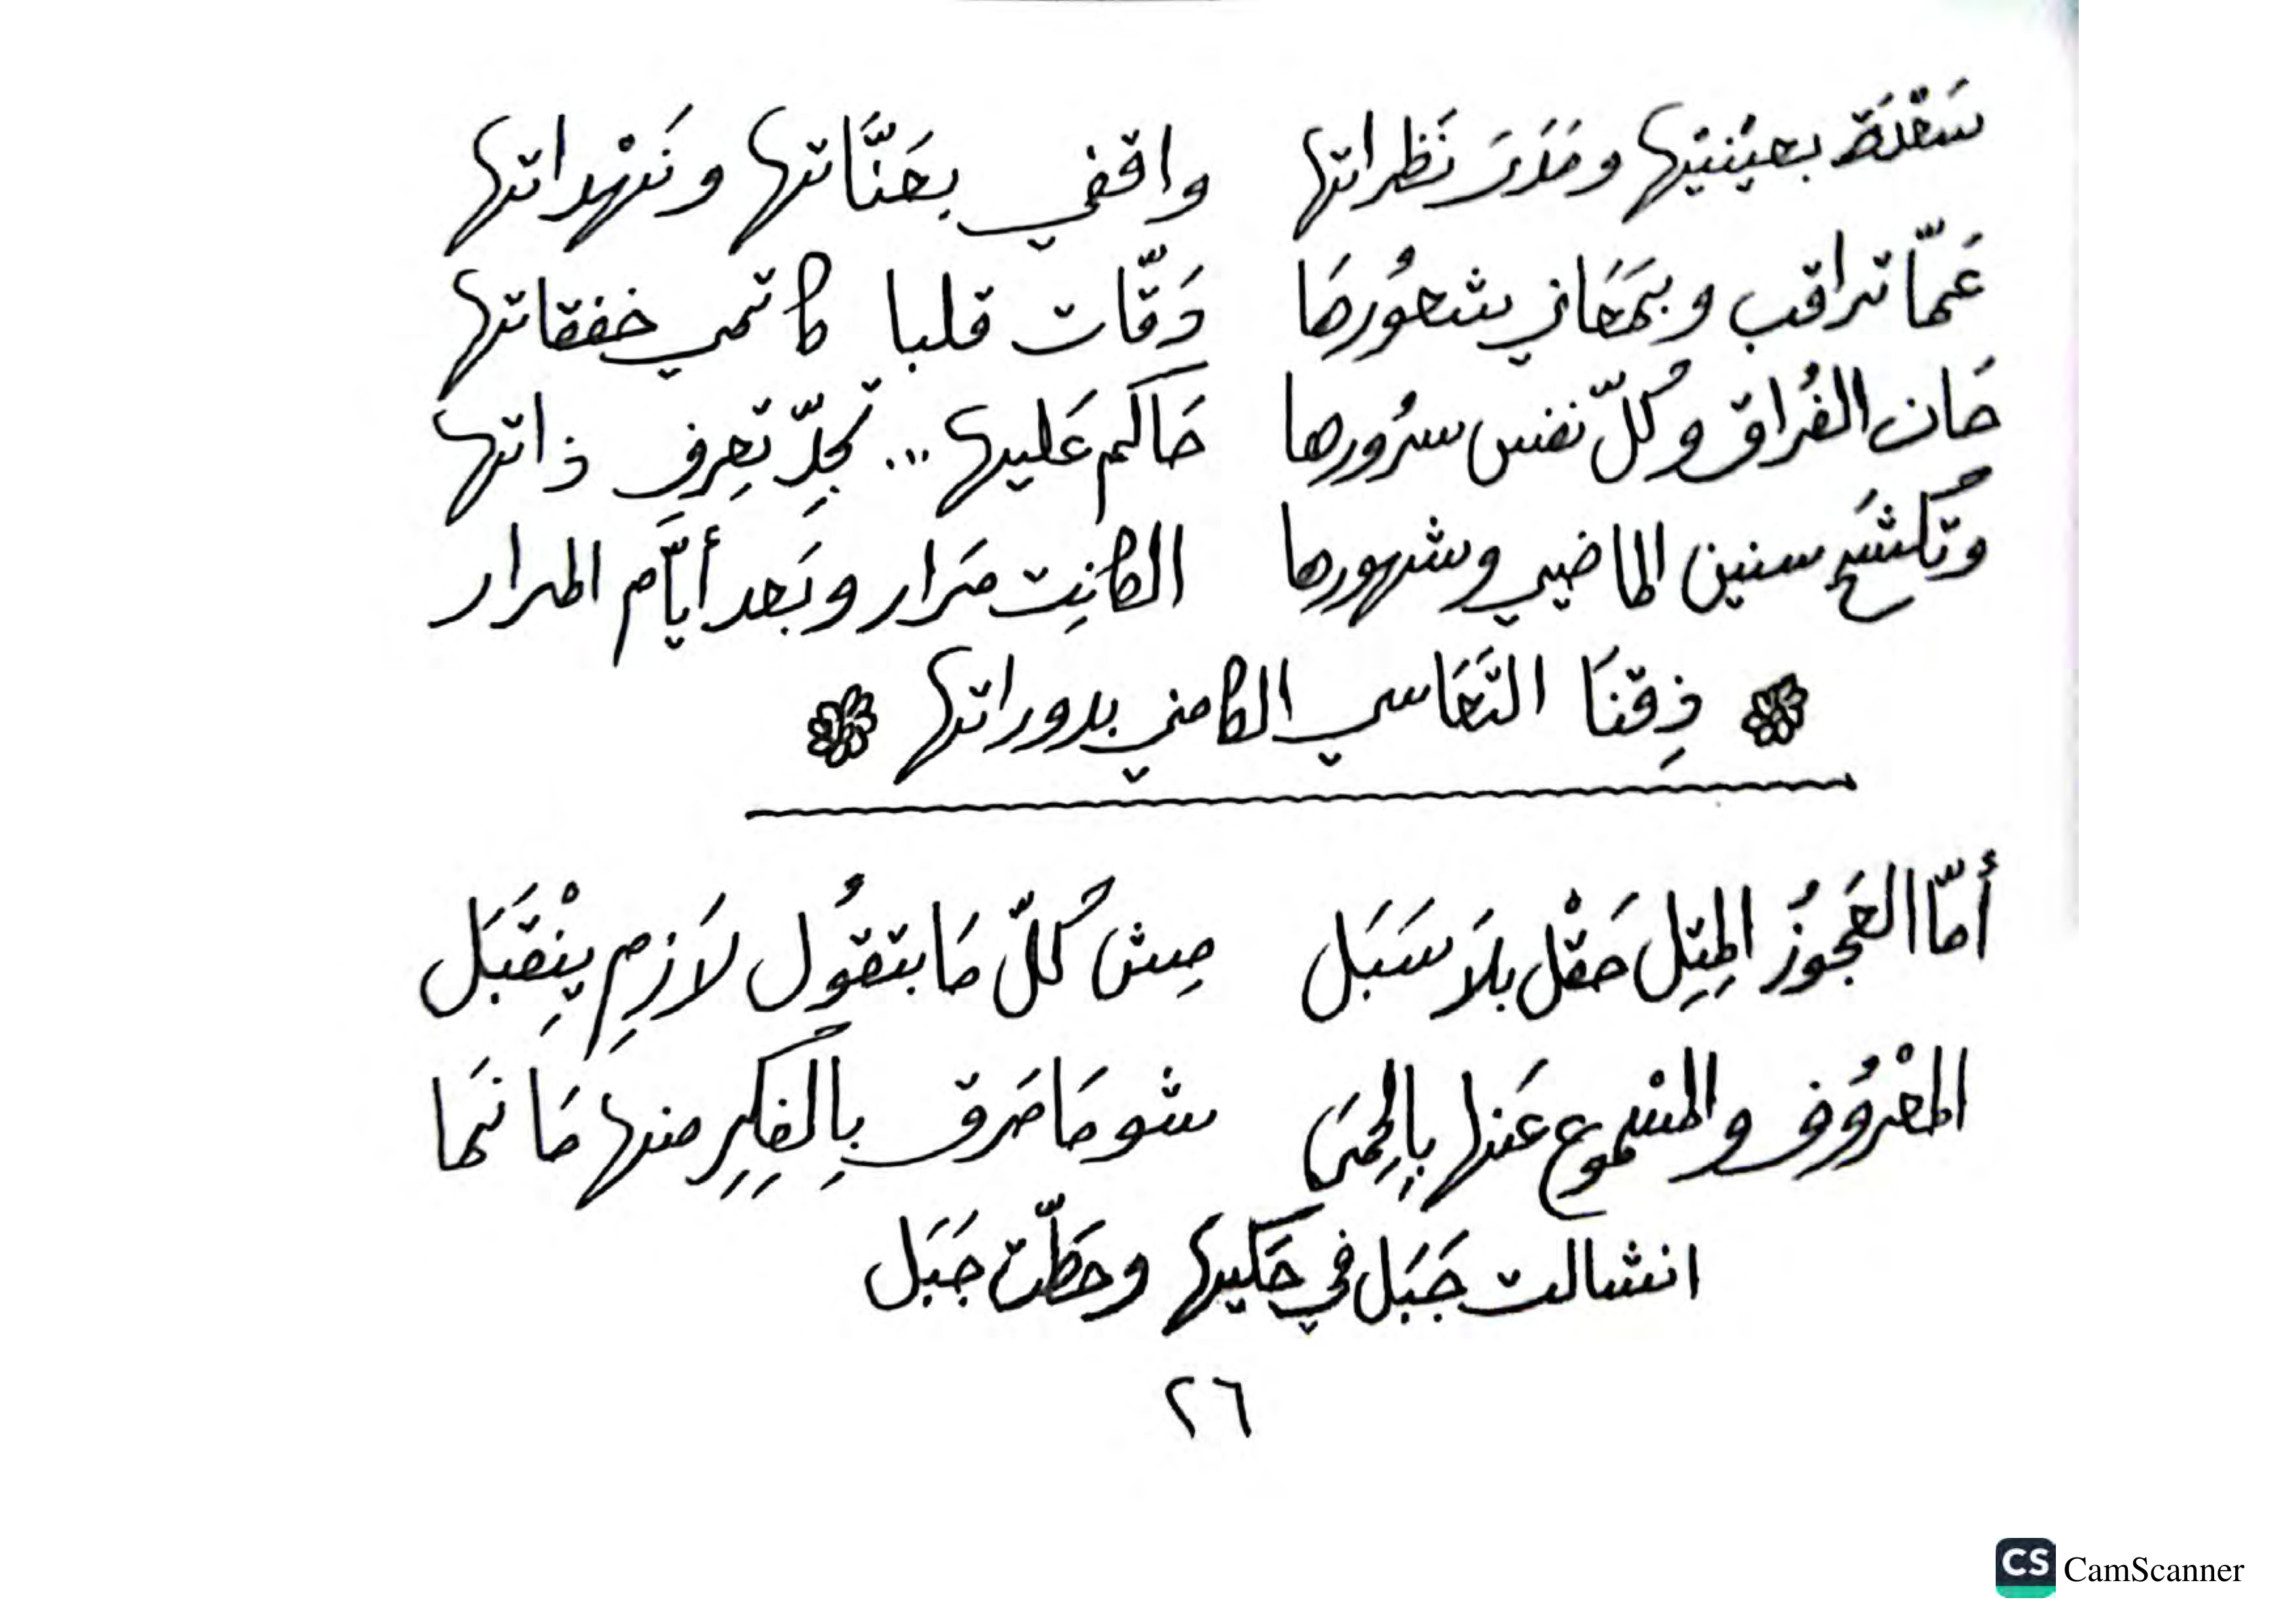 سَعْدَة بعيْنيْها ومَدَىَ نَظراتها واقفي بحَنَّاتها ونَهْداتها
عَمّا تراقب وبمَعَاني شعُورهَا دَقّات قلبا كاتمي خفقاتها
حَان الفُراق وكُلّ نفس سرُورها حَاكم عَليها ... تجِدّ تعِرف ذاتها
وتُكشَح سنين الماضي وشهورها الكانِت مَرار وبَعد أيَّام المرار
ذِقنَا التَعَاسي الكامني بدوراتها
أمّا العَجوزُ المِتِل حَقْل بلاَ سَبَل مِش كُلّ مَا بتقوُل لاَزِم يِنْقَبَل
المعْرُوف والمسْموع عَنها بالِحِمَى شو مَا مَرق بِالفِكِر منها مَا نَما
انشالت جَبَل في حَكيها وحطّت جَبَل
٢٦
CS CamScanner